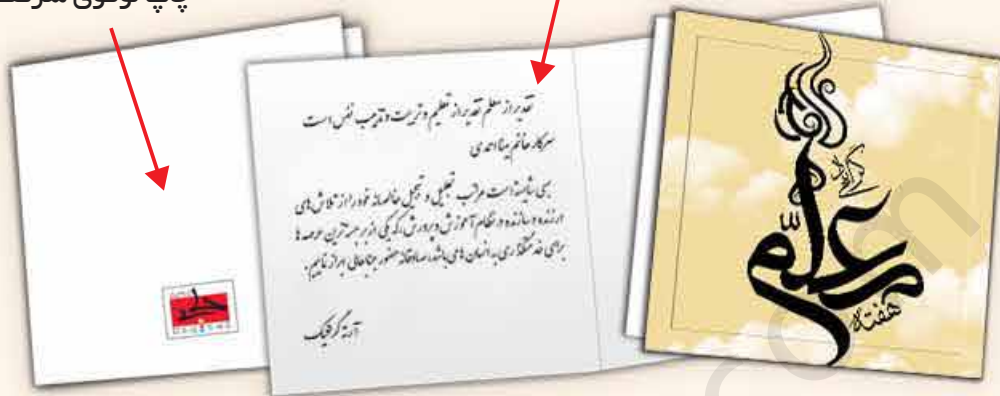 چاپ لوگوی
تقدیر از معلم تقدیر از تعلیم و تربیت و تهذیب نفس است
سرکار خانم مینا احمدی
بسی شایسته است مراتب تجلیل و تبجیل خالصانه خود را از تلاش های
ارزنده و سازنده در نظام آموزش و پرورش، که یکی از برجسته ترین عرصه ها
برای خدمتگذاری به انسان های باشد، صادقانه حضور جنابعالی ابراز نماییم.
آرته گرافیک
گرامیداشت
هفته
معلم
com